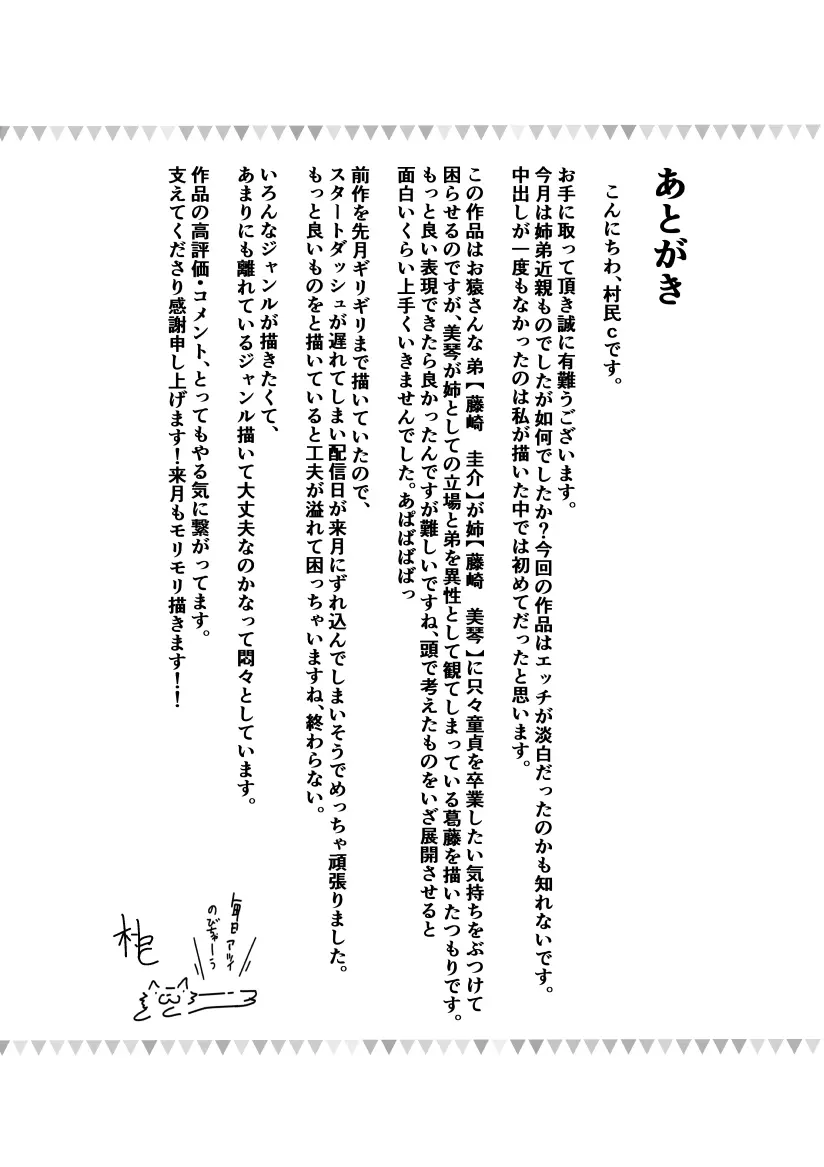 あとがき
こんにちわ、村民cです。
お手に取って頂き誠に有難うございます。
今月は姉弟近親ものでしたが如何でしたか？今回の作品はエッチが淡白だったのかも知れないです。
中出しが一度もなかったのは私が描いた中では初めてだったと思います。
この作品はお猿さんな弟【藤崎　圭介】が姉【藤崎　美琴】に只々童貞を卒業したい気持ちをぶつけて
困らせるのですが、美琴が姉としての立場と弟を異性として観てしまっている葛藤を描いたつもりです。
もっと良い表現できたら良かったんですが難しいですね、頭で考えたものをいざ展開させると
面白いくらい上手くいきませんでした。あぱばばばっ
前作を先月ギリギリまで描いていたので、
スタートダッシュが遅れてしまい配信日が来月にずれ込んでしまいそうでめっちゃ頑張りました。
もっと良いものをと描いていると工夫が溢れて困っちゃいますね、終わらない。
いろんなジャンルが描きたくて、
あまりにも離れているジャンル描いて大丈夫なのかなって悶々としています。
作品の高評価・コメント、とってもやる気に繋がってます。
支えてくださり感謝申し上げます！来月もモリモリ描きます！！
毎日アツイ
のびちゃーう
村民